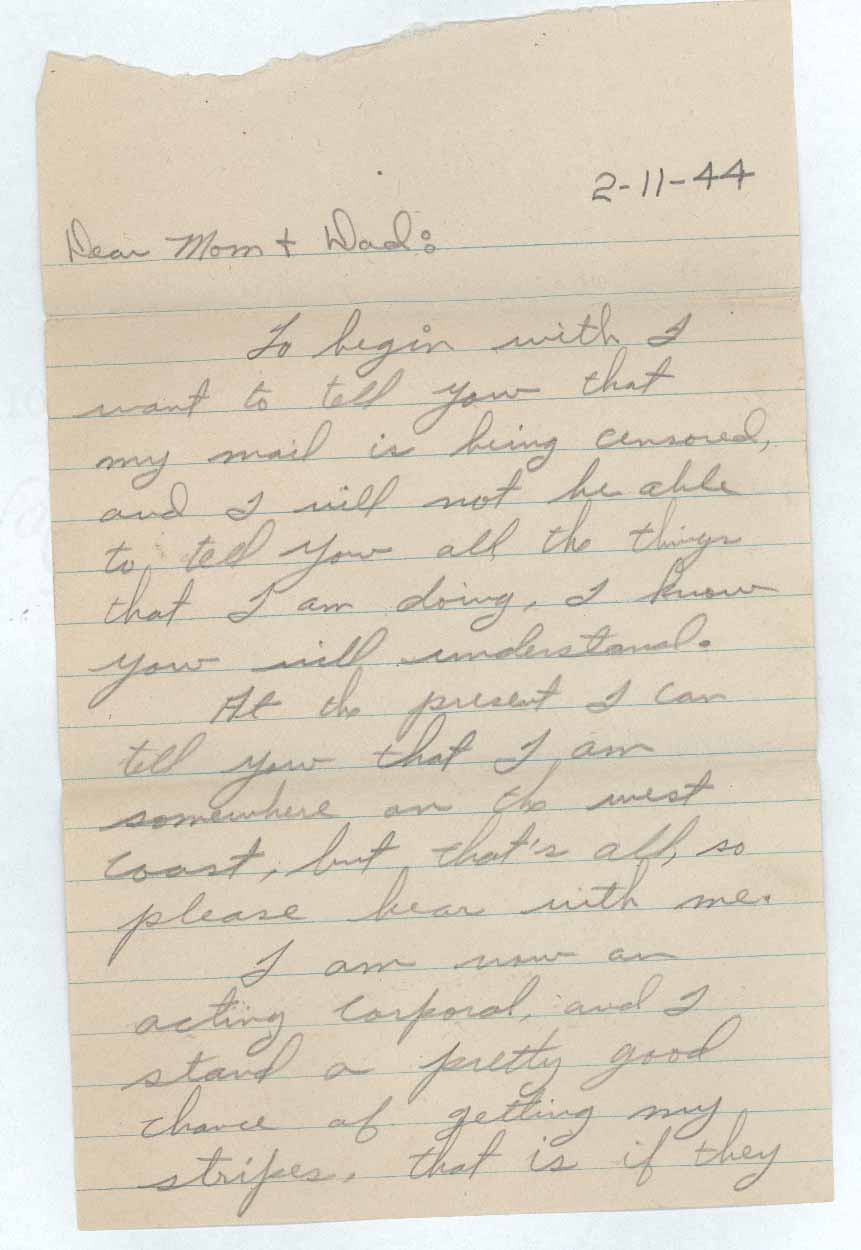 2-11-44
Dear Mom + Dad:
To begin with I
want to tell you that
my mail is being censored,
and I will not be able
to tell you all the things
that I am doing, I know
you will understand.
At the present I can
tell you that I am
somewhere on the west
coast, but that's all, so
please bear with me.
I am now an
acting corporal, and I
stand a pretty good
chance of getting my
stripes, that is if they